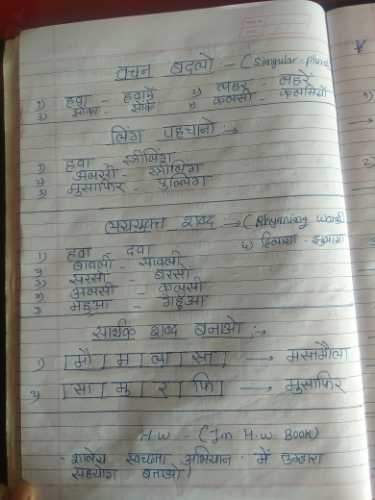 वचन बदलो - (Singular - plural
1) हवा - हवाएँ 3) लहर - लहरें
2) 4) कलसी - कलसियाँ
लिंग पहचानो :-
1) हवा स्त्रीलिंग
2) अलसी - स्त्रीलिंग
3) मुसाफिर - पुल्लिंग
लययुक्त शब्द → (Rhyming words)
1) हवा दवा
2) बावली - सावली
3) सरसों - बरसों
अलसी - कलसी
महुआ - गहुआ
सार्थक शब्द बनाओ :-
1) मौ म ला स्त → मस्तमौला
2) सा मु र फि → मुसाफिर
H.W - (Im H.W BOOK)
- शालेय स्वच्छता अभियान में तुम्हारा
सहयोग बताओ |